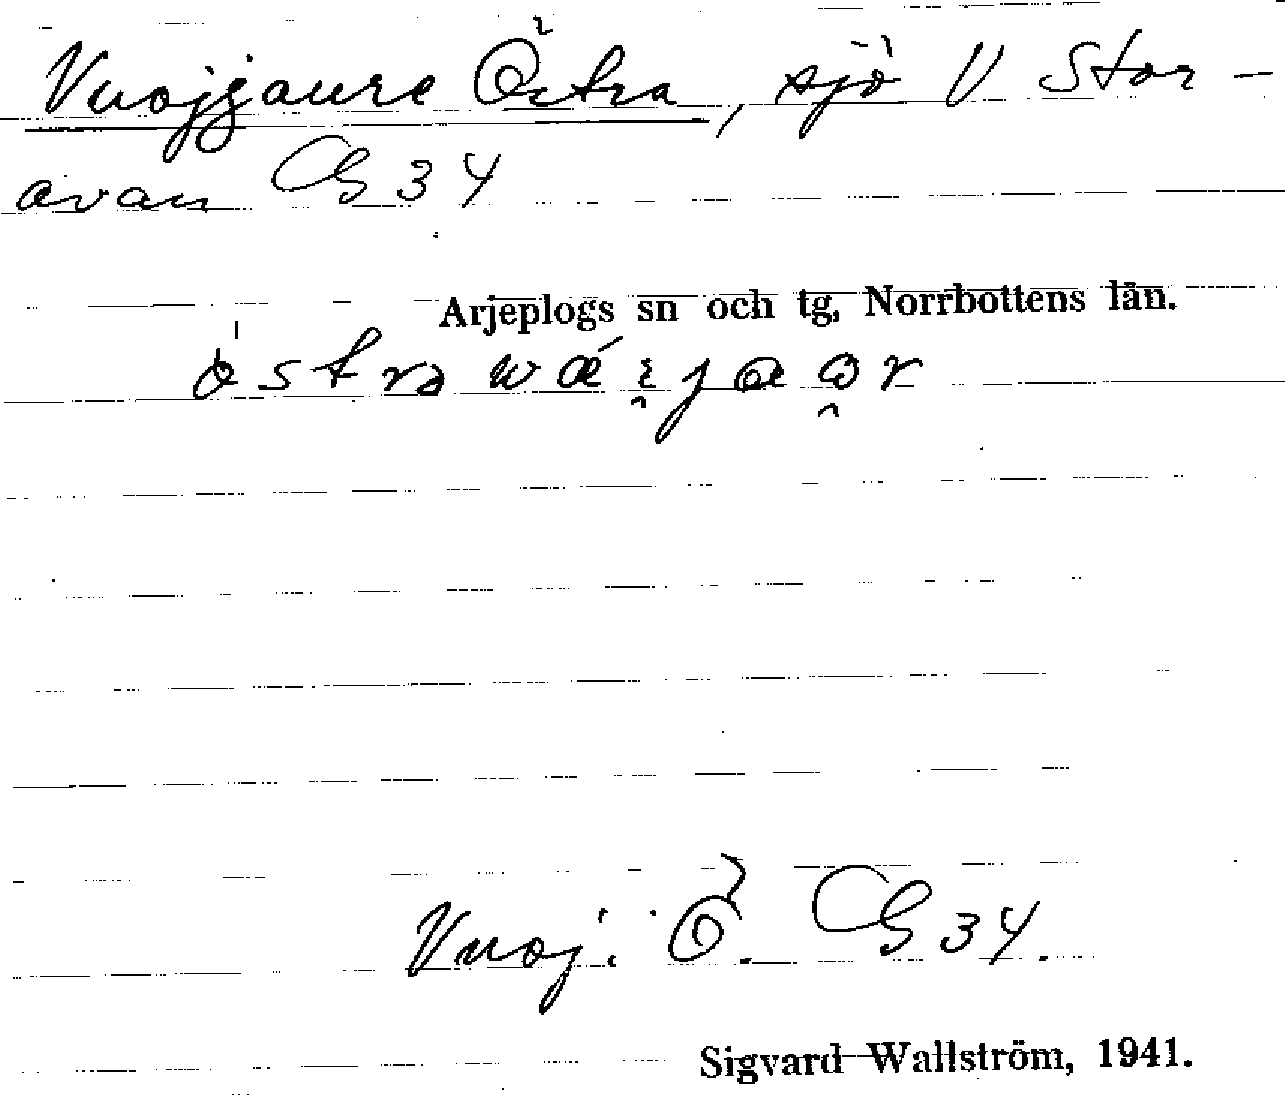 Vuojgaure Östra, sjö V Stor-
avan GS 34
Arjeplogs sn och tg, Norrbottens län.
Vuoj. Ö. GS 34.
Sigvard Wallström, 1941.